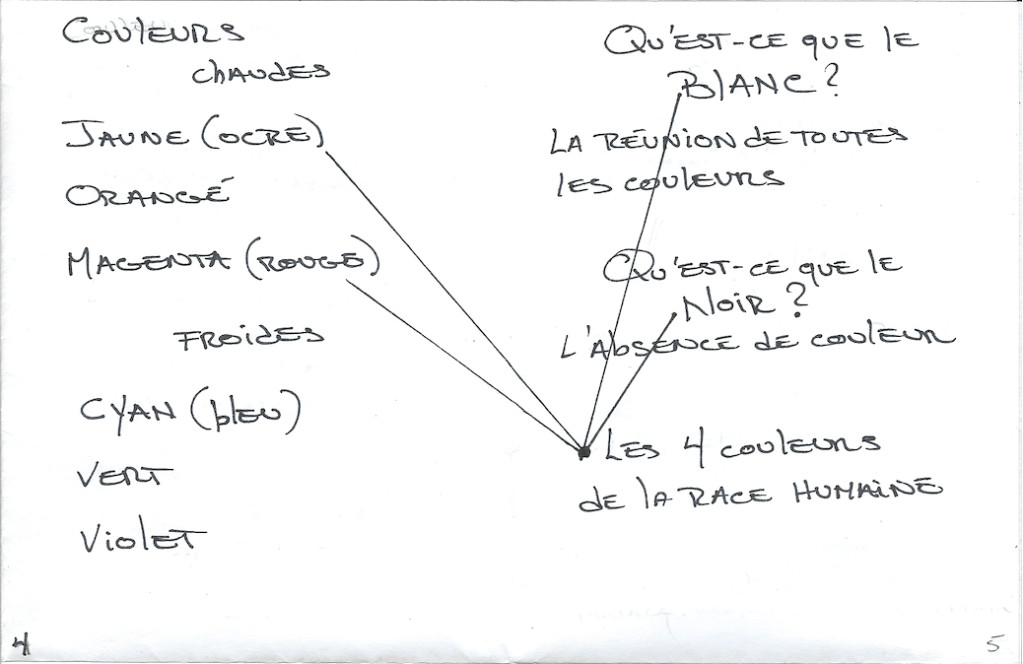 Couleurs
chaudes
Jaune (ocre)
Orangé
Magenta (rouge)
Froides
Cyan (bleu)
Vert
Violet
4
Qu'est-ce que le
Blanc ?
La réunion de toutes
les couleurs
Qu'est-ce que le
Noir ?
L'absence de couleur
Les 4 couleurs
de la race humaine
5